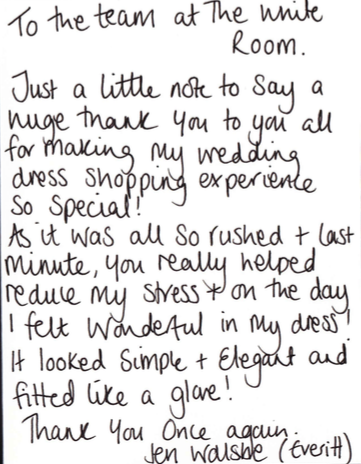 To the team at The White
Room.
Just a little note to say a
huge thank you to you all
for making my wedding
dress shopping experience
so special!
As it was all so rushed + last
minute, you really helped
reduce my stress + on the day
I felt wonderful in my dress!
It looked simple + elegant and
fitted like a glove!
Thank you once again.
Jen (Everitt)